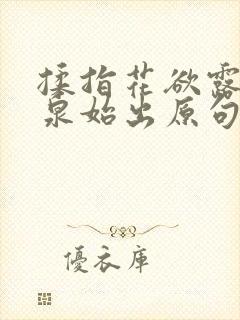 揉指花欲露
泉始出原句
優衣庫